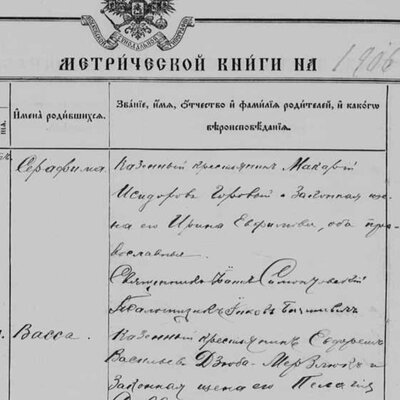 МЕТРИ́ЧЕСКОЙ КНИ́ГИ НА 1906
И́мена̀ роди́вшихся.
Зва́нїе, и́мя, о́тчество и҆ фами́лїя роди́телей, и҆ како́гѡ
вѣроисповѣ́данїя.
Серафима.
Казенный крестьянинъ Макарій
Исидоровъ Горовой и Законная же-
на его Ирина Евфимова, оба пра-
вославные.
Священникъ
Псаломщикъ Іаковъ
Васса.
Казенный крестьянинъ
Васильевъ Дзюба и
Законная жена его Пелагія